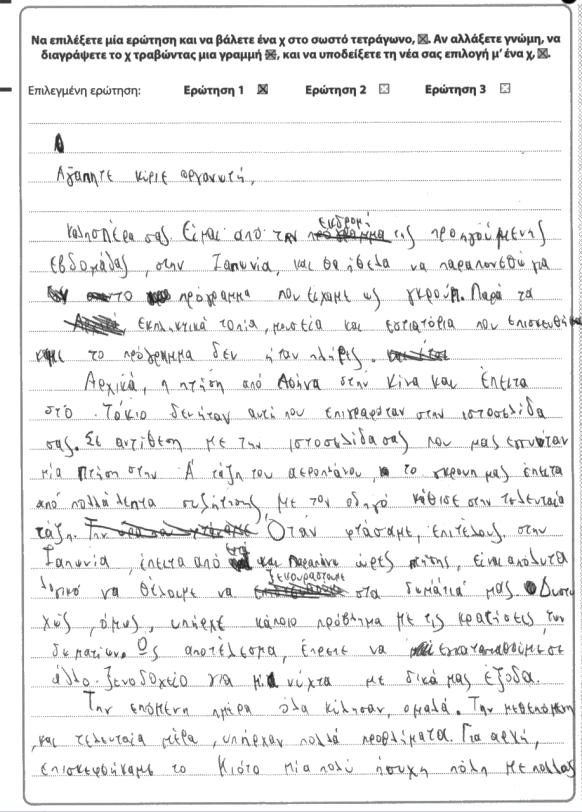 Να επιλέξετε μία ερώτηση και να βάλετε ένα χ στο σωστό τετράγωνο, ☒. Αν αλλάξετε γνώμη, να
διαγράψετε το χ τραβώντας μια γραμμή ☒, και να υποδείξετε τη νέα σας επιλογή μ' ένα χ, ☒.
Επιλεγμένη ερώτηση: Ερώτηση 1 ☒ Ερώτηση 2 ☐ Ερώτηση 3 ☐
Αγαπητε κύριε οργανωτή,
Καλησπέρα σας. Είμαι από την εκδρομή της προηγούμενης
εβδομάδας, στην Ιαπωνία, και θα ήθελα να παραπονεθώ για
το πρόγραμμα που είχαμε ως γκρούπ. Παρά τα
εκπληκτικά τοπία, μουσεία και εστιατόρια που επισκευθή
καμε το πρόγραμμα δεν ήταν πλήρες.
Αρχικά, η πτήση από Αθήνα στην Κίνα και έπειτα
στο Τόκιο δεν ήταν αυτή που επιγραφόταν στην ιστοσελίδα
σας. Σε αντίθεση με την ιστοσελίδα σας που μας
μία πτήση στην Α' τάξη του αεροπλάνου, το γκρουπ μας έπειτα
από πολλά λεπτα συζήτησης με τον οδηγό κάθισε στην τελευταία
τάξη. Όταν φτάσαμε, επιτέλους, στην
Ιαπωνία, έπειτα από και παραπάνω ώρες πτήσης, είναι απόλυτα
λογικό να θέλουμε να ξεκουραστουμε στα δωμάτιά μας. Δυστυ
χώς, όμως, υπήρχε κάποιο πρόβλημα με τις κρατίσεις των
δωματίων. Ως αποτέλεσμα, έπρεπε να εγκατασταθούμε σε
άλλο ξενοδοχείο για μια νύχτα με δικά μας έξοδα.
Την επόμενη ημέρα όλα κύλησαν, ομαλά. Την μεθεπόμενη
,και τελευταία μέρα, υπήρχαν πολλά προβλήματα. Για αρχή,
επισκεφθήκαμε το Κιότο μία πολύ ήσυχη πόλη με πολλούς